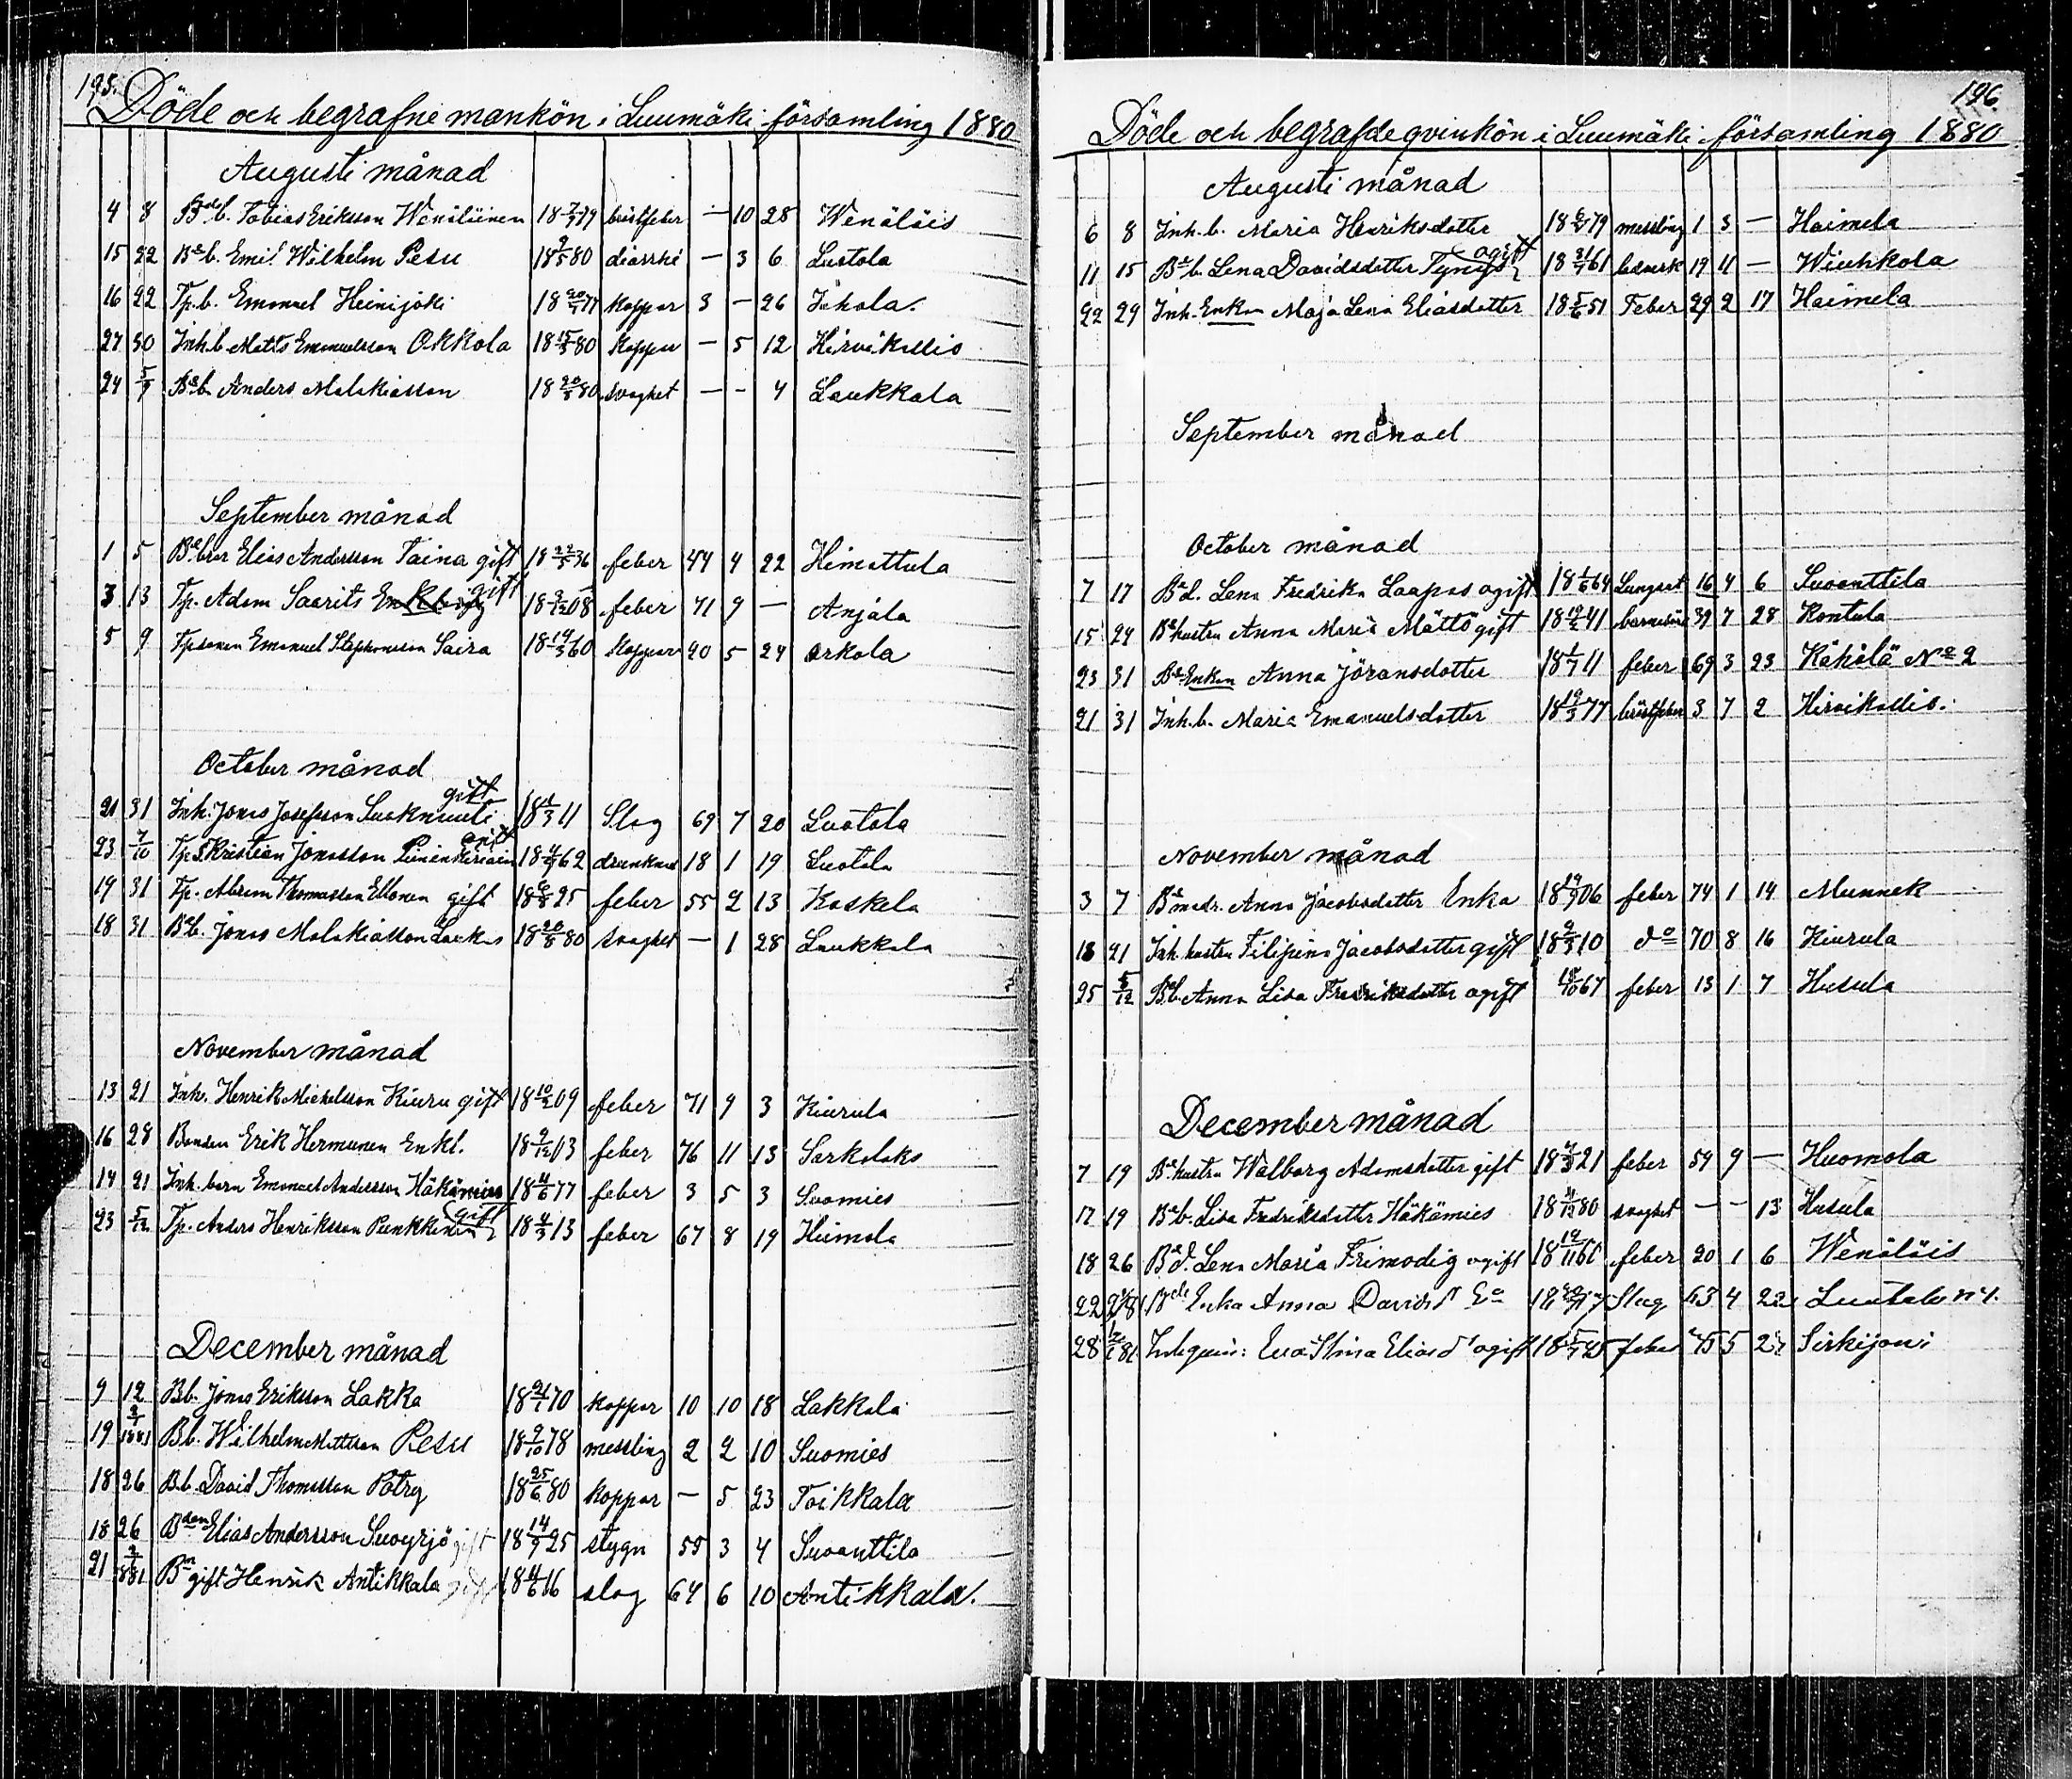 195.
Döde och begrafne mankön i Luumäki församling 1880
Augusti månad
4 8 Bdeb. Tobias Eriksson Wenäläinen 18 7/9 79 bröstfeber — 10 28 Wenäläis
15 22 Bdeb. Emil Wilhelm Pesu 18 9/5 80 diarrhé — 3 6 Luotola
16 22 Tp. b. Emanuel Heinijoki 18 20/7 77 koppor 3 — 26 Jukola.
27 30 Inh. b. Matts Emanuelsson Okkola 18 15/3 80 koppor — 5 12 Hirvikallio
24 5/9 Bdeb. Anders Malakiasson 18 20/8 80 svaghet — - 4 Laukkala
September månad
1 5 Bdebror Elias Andersson Taina gift 18 22/3 36 feber 44 4 22 Himottula
3 13 Tp. Adam Saarits gift 18 3/12 08 feber 71 9 — Anjala
5 9 Tpsonen Emanuel Stephansson Saira 18 14/3 60 koppor 20 5 24 Arkola
October månad
21 31 Inh. Jonas Josefsson Suoknuuti gift 18 1/3 11 Slag 69 7 20 Luotola
23 7/10 Tp.S. Kristian Jonasson 18 4/9 62 drunknad 18 1 19 Luotola
19 31 Tp. Abram Thomasson Ellonen gift 18 6/8 25 feber 55 2 13 Kaskela
18 31 Bdeb. Jonas Malakiasson Laukas 18 20/8 80 svaghet — 1 28 Laukkala
November månad
13 21 Inh. Henrik Michelsson Kiuru gift 18 10/2 09 feber 71 9 3 Kiurula
16 28 Bonden Erik Hermunen Enkl. 18 3/12 03 feber 76 11 13 Sarkalaks
14 21 Inh. barn Emanuel Andersson Häkämies 18 11/6 77 feber 3 5 3 Suomies
23 5/12 Tp. Anders Henriksson Punkkinen gift 18 4/3 13 feber 67 8 19 Heimala
December månad
9 12 Bb. Jonas Eriksson Lakka 18 21/1 70 koppor 10 10 18 Lakkala
19 2/1 1881 Bb. Wilhelm Mattsson Pesu 18 9/10 78 messling 2 2 10 Suomies
18 26 Bb. David Thomasson Pätry 18 25/6 80 koppor — 5 23 Toikkala
18 26 Bden Elias Andersson Suoyrjö gift 18 14/9 25 stygn 55 3 4 Suoanttila
21 2/1 881 Bn gift Henrik Antikkala gift 18 11/6 16 slag 64 6 10 Antikkala.
196.
Döde och begrafde qvinkön i Luumäki församling 1880
Augusti månad
6 8 Inh. b. Maria Henriksdotter 18 6/5 79 messling 1 3 — Haimela
11 15 Bdeb. Lena Davidsdotter Tynys ogift 18 31/7 61 bedverk 19 11 — Wiuhkola
22 29 Inh. Enkan Maja Lena Eliasdotter 18 5/6 51 Feber 29 2 17 Haimela
September månad
October månad
7 17 Bded. Lena Fredrika Laapas ogift 18 1/6 64 Lungsot 16 4 6 Suoanttila
15 24 Bdehustru Anna Maria Mättö gift 18 19/2 41 barnsbörd 39 7 28 Kontula
23 31 BdeEnkan Anna Jöransdotter 18 1/7 11 feber 69 3 23 Kähölä No 2
21 31 Inh. b. Maria Emanuelsdotter 18 19/3 77 bröstfeber 3 7 2 Hirvikallio.
November månad
3 7 Bdemodr. Anna Jacobsdotter Enka 18 19/9 06 feber 74 1 14 Munnek
18 21 Inh. hustru Filipina Jacobsdotter gift 18 2/3 10 do 70 8 16 Kiurula
25 5/12 Bdeb. Anna Lisa Fredriksdotter ogift 18/10 67 feber 13 1 7 Husula
December månad
7 19 Bdehustru Walborg Adamsdotter gift 18 7/3 21 feber 59 9 — Huomola
17 19 Bdeb. Lisa Fredriksdotter Häkämies 18 4/12 80 svaghet — - 13 Husula
18 26 Bded. Lena Maria Frimodig ogift 18 12/11 60 feber 20 1 6 Wenäläis
22 Bde Enka Anna Davidsdr Slag 63 4 22 Luotola
28 Inhqvin: Eva Stina Eliasdr ogift feber 5 Sirkijoni